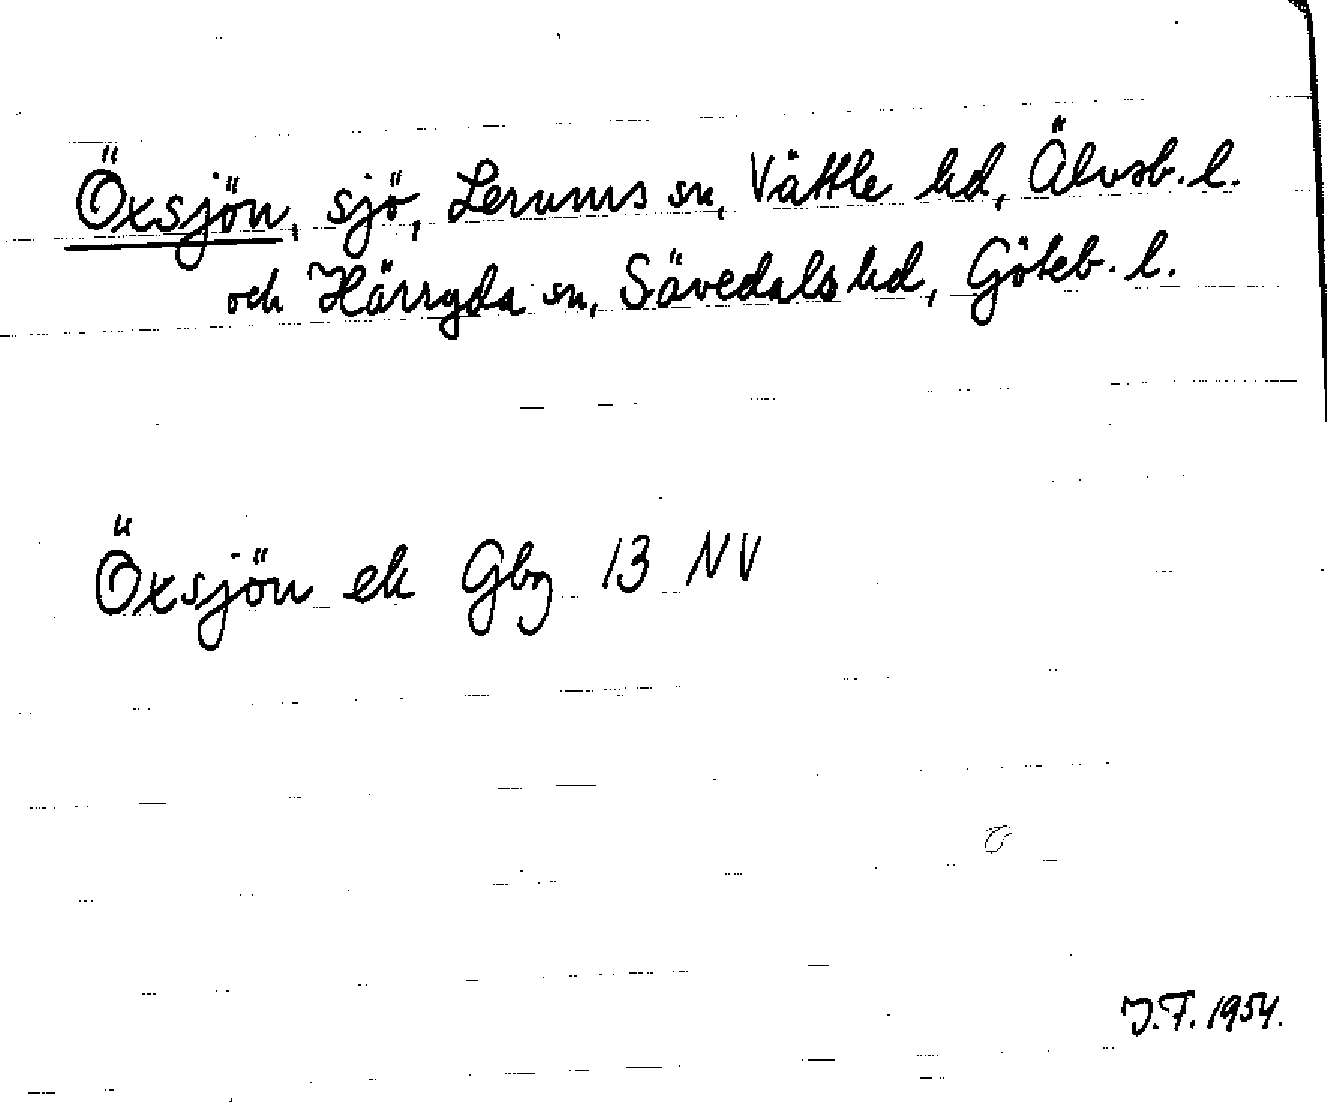 Öxsjön, sjö, Lerums sn, Vättle hd, Älvsb. l.
och Härryda sn, Sävedals hd, Göteb. l.
Öxsjön ek Gbg 13 NV
J.F. 1954.